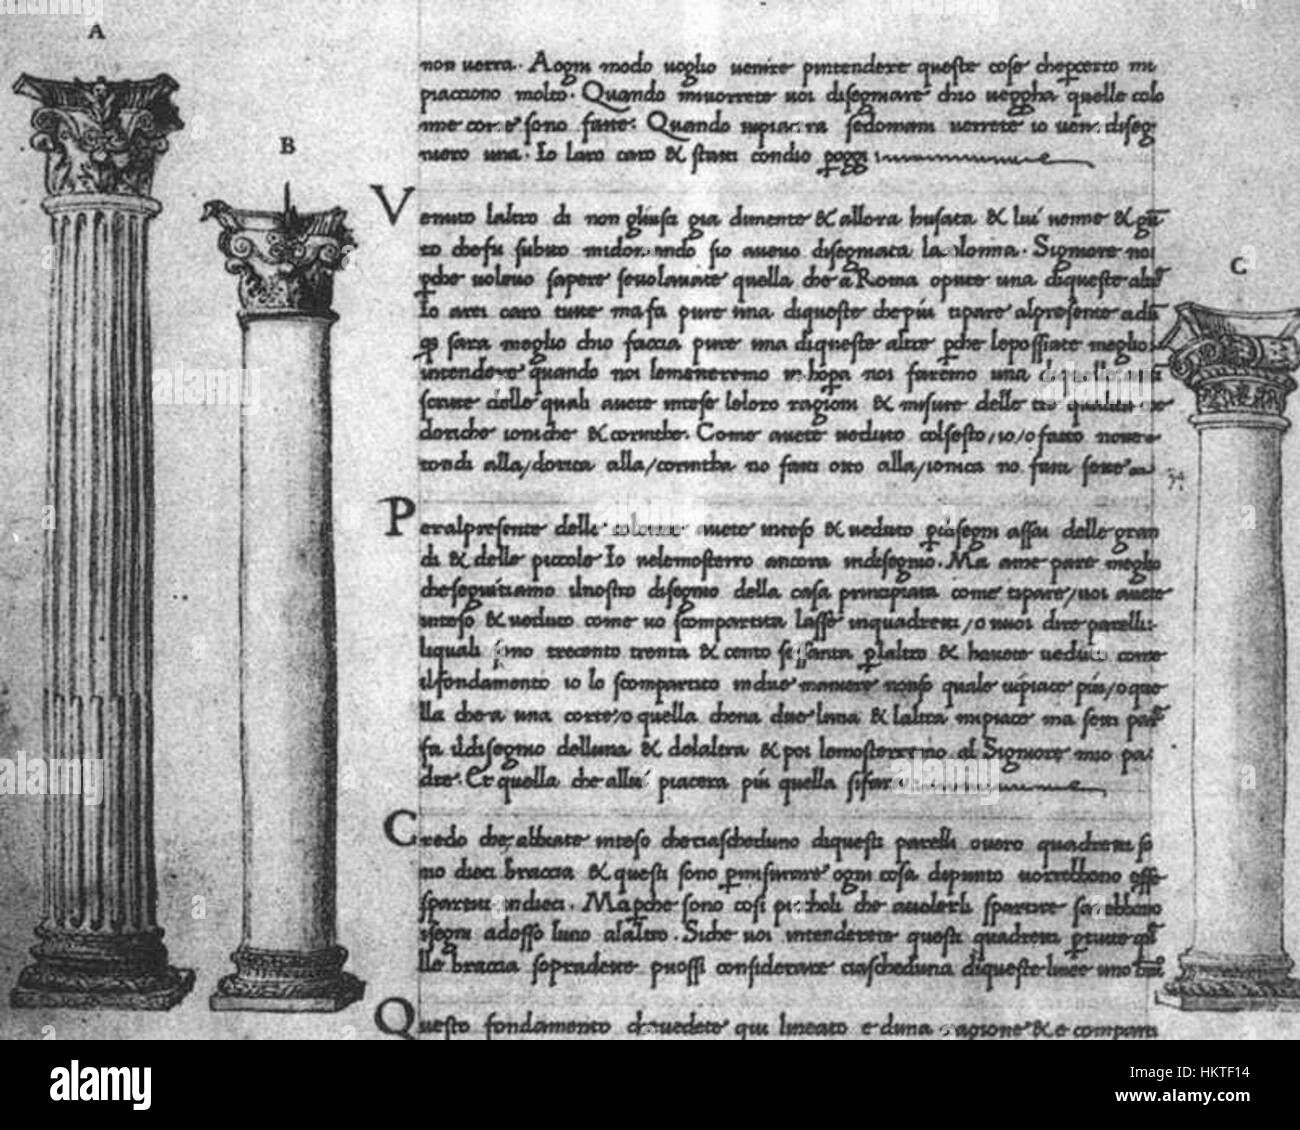 A
B
C
non verra. Aogni modo voglio venire pintendere queste cose chepcerto mi
piacciono molto. Quando mivorrete voi disegniare chio vegg̃ha quelle colo
nne come sono fatte. Quando vipiacera sedomani verrete io veni diseg
niero una. Io laro caro & stara condio poggi
Venuto laltro di non gliusci gia dimente & allora husata & lui venne &
to chefu subito midomando sio avevo disegniata la donna. Signiore noi
pche volevo sapere sevolavate quella che a Roma opure una diqueste
Io arei caro tutte ma fa pure una diqueste chepiu tipare alpresente
sara meglio chio faccia pure una diqueste altre pche lepossiate meglio
intendere quando noi lemeneremo noi faremo una diquelle
scritte delle quali avete inteso leloro ragioni & misure delle tre qualita
doriche ioniche & corinthe. Come avete veduto colsesto/io/o fatto nove
tondi alla/dorica alla/corintha no fatti otto alla/ionica no fatti sette
Peralpresente delle colonne avete inteso & veduto pdisegni assai delle gran
di & delle piccole Io velemosterro ancora indisegnio. Ma ame pare meglio
cheseguitiamo ilnostro disegno della casa principiata come tipare/voi avete
inteso & veduto come vo scompartita lasse inquadretti/o vuoi dire parelli
liquali sono trecento trenta & cento sessanta plaltro & havete veduto come
ilfondamento io lo scompartito indue maniere nonso quale vipiace piu/o que
lla che a una corte/o quella chena due luna & laltra mipiace ma
fa ildisegnio delluna & delaltra & poi lemosterremo al Signiore mio pa
dre. Et quella che allui piacera piu quella sifara
Credo che abbiate inteso checiascheduno diquesti parelli overo quadretti so
no dieci braccia & questi sono pmisurare ogni cosa apunto vorrebbono esse
spartiti indieci. Mapche sono cosi piccholi che avolerli spartire sarebbono
isegni adosso luno alaltro. Siche voi intenderete questi quadretti
lle braccia sopradette puossi considerare ciascheduna diqueste
Questo fondamento chevedete qui lineato e duna ragione & e comparti
alamy
a
alamy
HKTF14
www.alamy.com